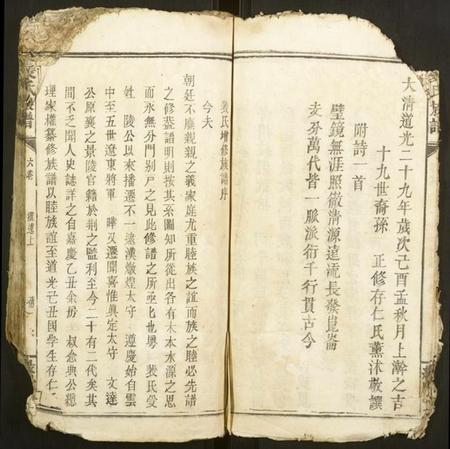 大清道光二十九年歲次己酉孟秋月上澣之吉
十九世裔孫 正修存仁氏薰沐敬譔
附詩一首
壁鏡無涯照徹清源遠流長發崑崙
支分萬代皆一脈派衍千行貫古今
裴氏增修族譜序
今夫
朝廷不廢親親之義家庭尤重睦族之誼而族之睦必先譜
之修蓋譜明則按其系圖知所從出各有木本水源之思
而永無分門別戶之見此修譜之所亟也粵 裴氏受
姓 陵公以來播遷不一遠漢燉煌太守 遵慶始自雲
中至五世遼東將軍 曄又遷聞喜惟典定太守 文達
公原襄之景陵官籍於荊之監利至今二十有二代矣其
間不乏聞人史誌詳之自嘉慶乙丑余伯 叔念典公總
理家權纂修族譜以睦族誼至道光己丑國學生存仁
族譜
六卷